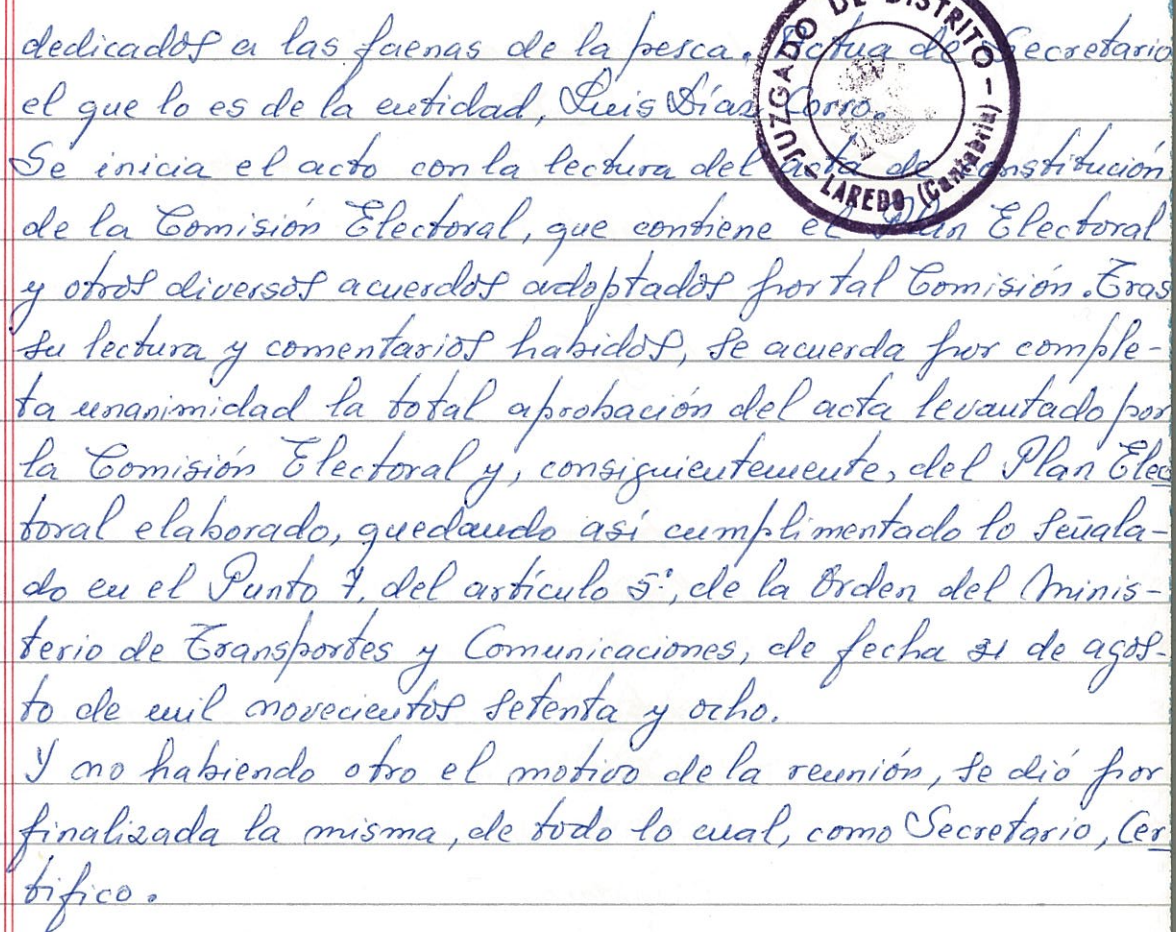 JUZGADO DE DISTRITO - LAREDO (Cantabria) -
dedicados a las faenas de la pesca. Actua de Secretario
el que lo es de la entidad, Luis Díaz Corro.
Se inicia el acto con la lectura del acta de constitución
de la Comisión Electoral, que contiene el Plan Electoral
y otros diversos acuerdos adoptados por tal Comisión. Tras
su lectura y comentarios habidos, se acuerda por comple-
ta unanimidad la total aprobación del acta levantado por
la Comisión Electoral y, consiguientemente, del Plan Elec
toral elaborado, quedando así cumplimentado lo señala-
do en el Punto 7, del artículo 5º, de la Orden del Minis-
terio de Transportes y Comunicaciones, de fecha 31 de agos-
to de mil novecientos setenta y ocho.
Y no habiendo otro el motivo de la reunión, se dió por
finalizada la misma, de todo lo cual, como Secretario, Cer
tifico.